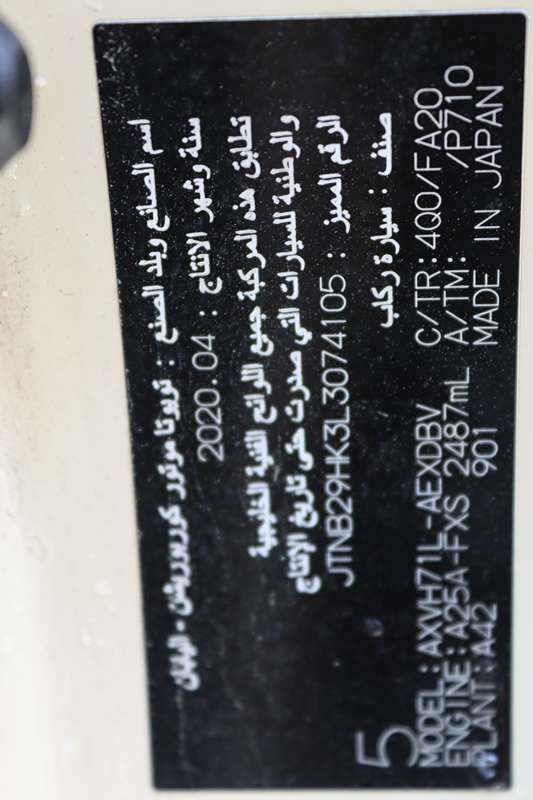 اسم الصانع وبلد الصنع : تويوتا موتور كوربوريشن - اليابان
سنة وشهر الانتاج : 2020.04
تطابق هذه المركبة جميع اللوائح الفنية الخليجية
والوطنية للسيارات التي صدرت حتى تاريخ الانتاج
الرقم المميز : JTNB29HK3L3074105
صنف : سيارة ركاب
5
MODEL : AXVH71L-AEXDBV C/TR: 4Q0/FA20
ENGINE: A25A-FXS 2487mL A/TM: /P710
PLANT: A42 901 MADE IN JAPAN